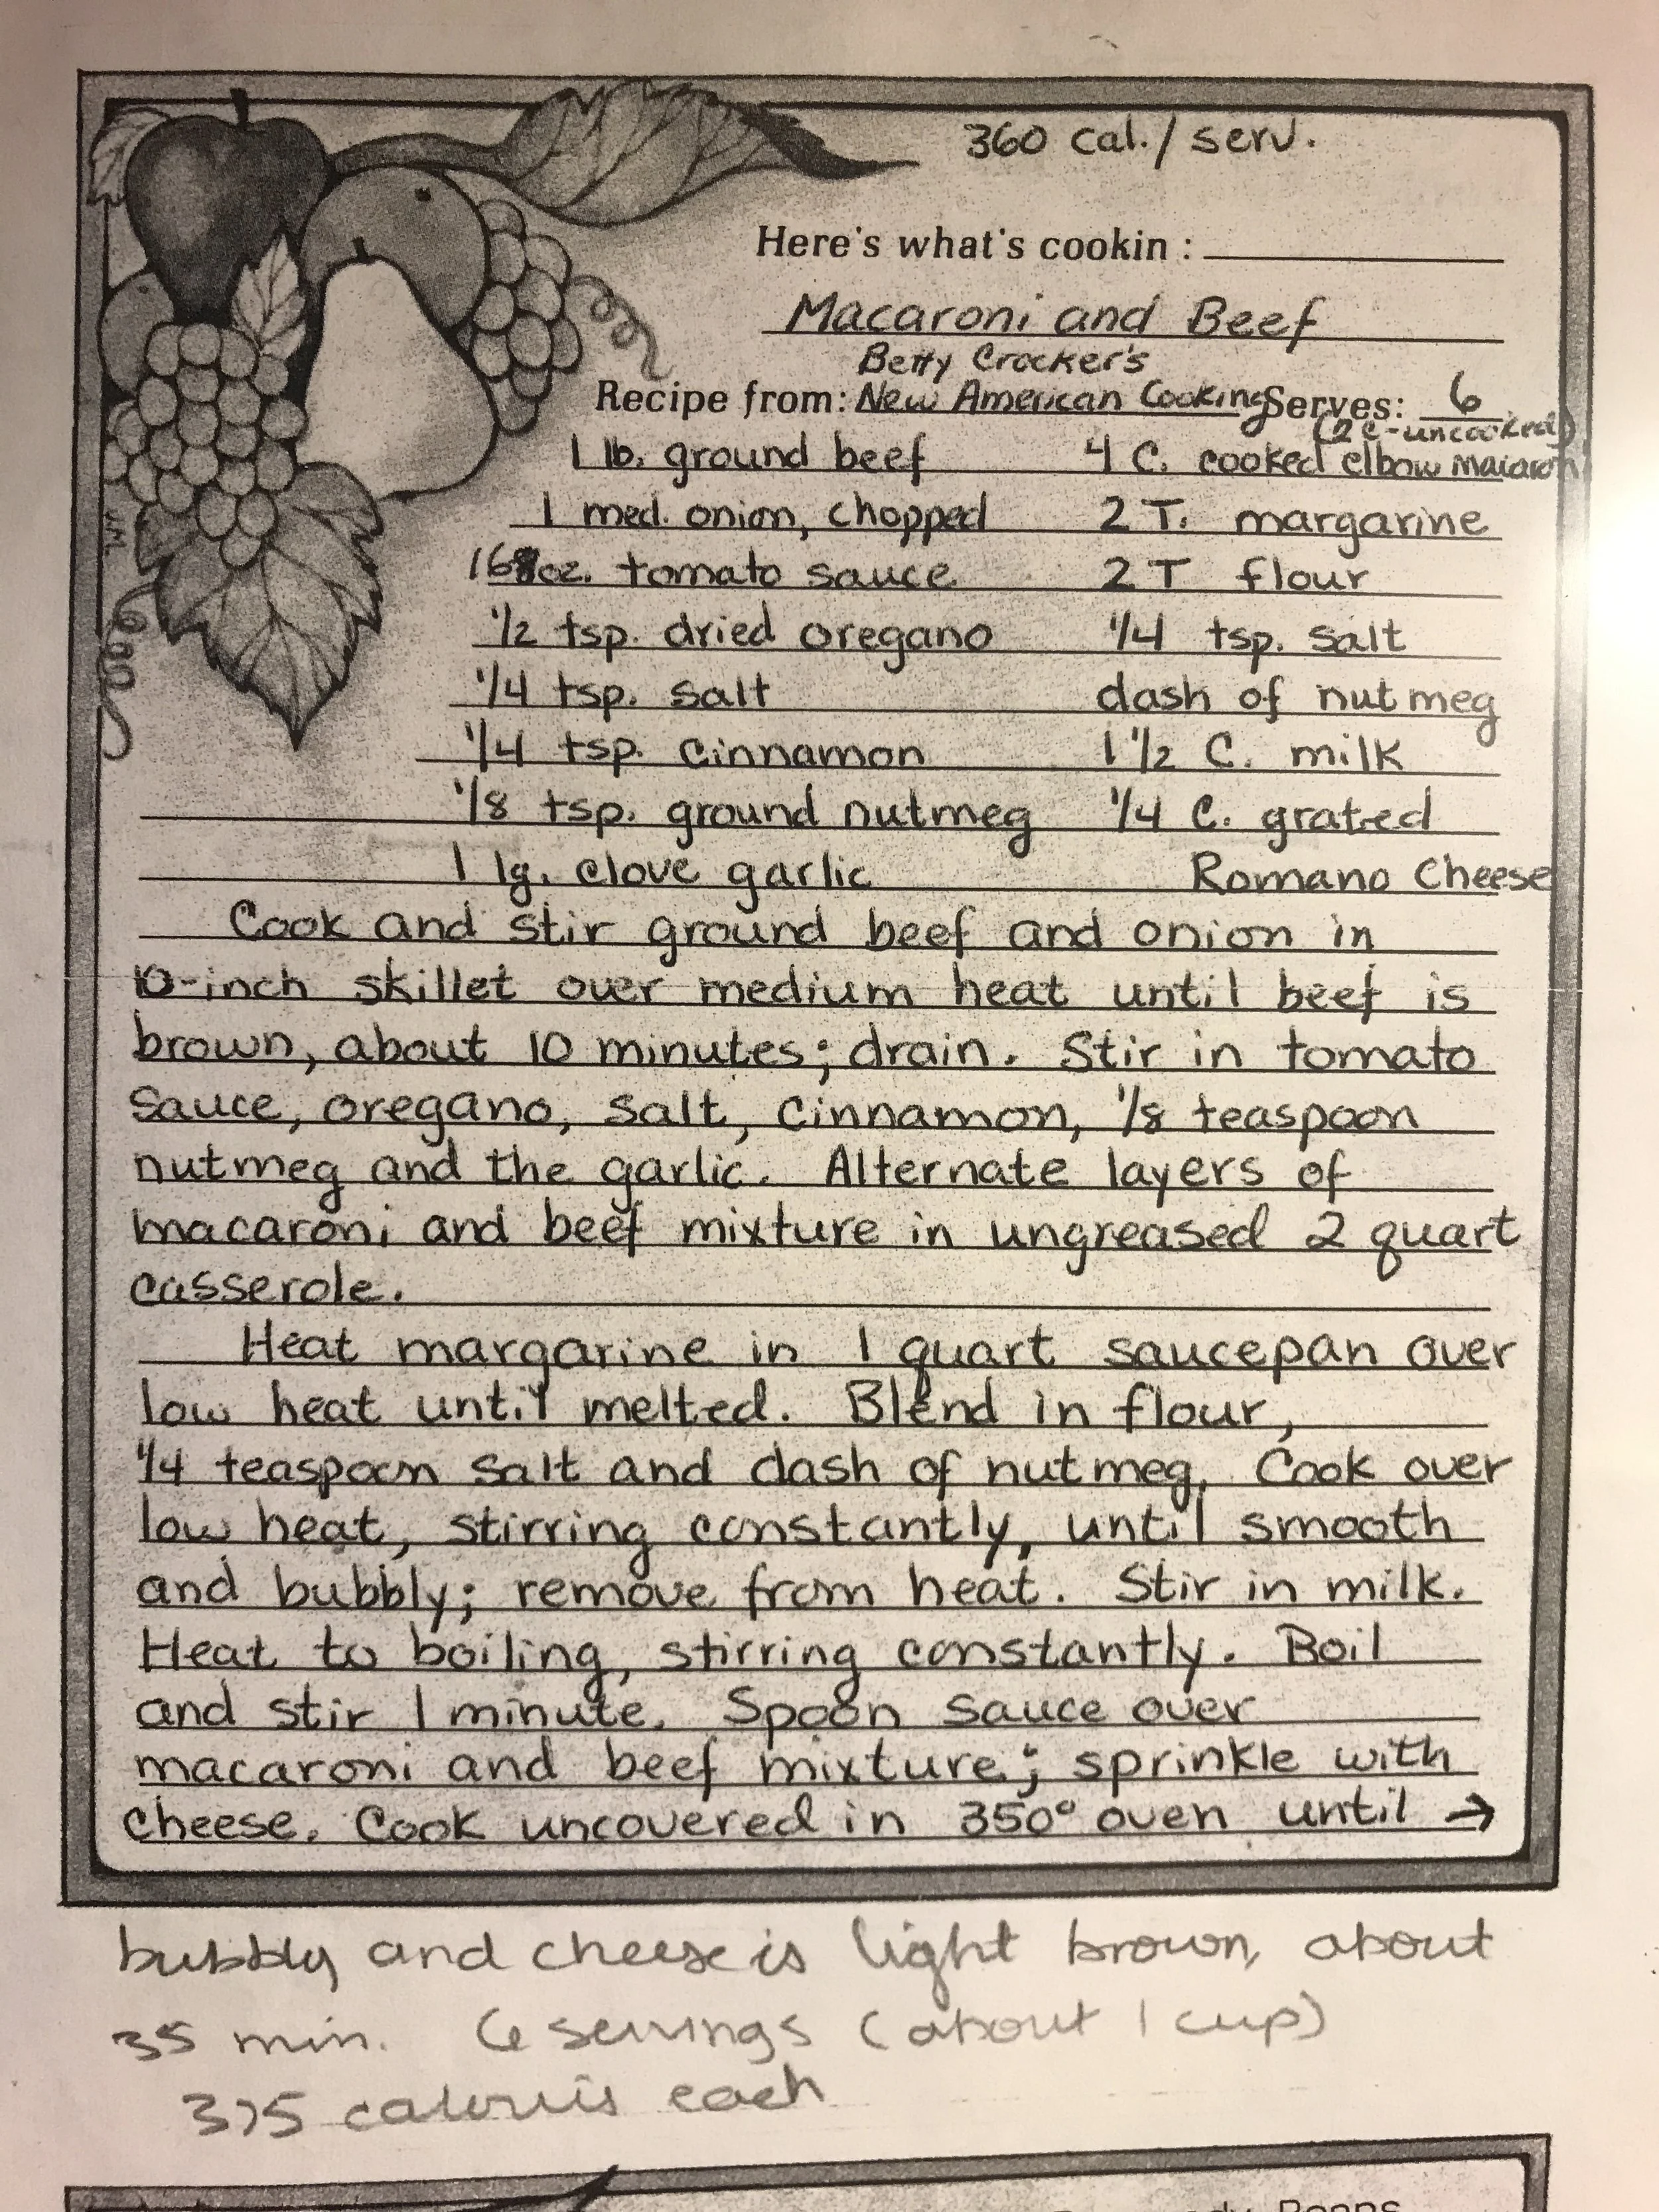 360 cal./serv.
Here's what's cookin:
Macaroni and Beef
Betty Crocker's
Recipe from: New American Cooking Serves: 6
(2 c-uncooked)
1 lb. ground beef 4 C. cooked elbow macaroni
1 med. onion, chopped 2 T. margarine
16 oz. tomato sauce 2 T flour
1/2 tsp. dried oregano 1/4 tsp. salt
1/4 tsp. salt dash of nutmeg
1/4 tsp. cinnamon 1 1/2 C. milk
1/8 tsp. ground nutmeg 1/4 C. grated
1 lg. clove garlic Romano Cheese
Cook and stir ground beef and onion in
10-inch skillet over medium heat until beef is
brown, about 10 minutes; drain. Stir in tomato
sauce, oregano, salt, cinnamon, 1/8 teaspoon
nutmeg and the garlic. Alternate layers of
macaroni and beef mixture in ungreased 2 quart
casserole.
Heat margarine in 1 quart saucepan over
low heat until melted. Blend in flour,
1/4 teaspoon salt and dash of nutmeg. Cook over
low heat, stirring constantly, until smooth
and bubbly; remove from heat. Stir in milk.
Heat to boiling, stirring constantly. Boil
and stir 1 minute. Spoon sauce over
macaroni and beef mixture; sprinkle with
cheese. Cook uncovered in 350° oven until →
bubbly and cheese is light brown, about
35 min. 6 servings (about 1 cup)
375 calories each